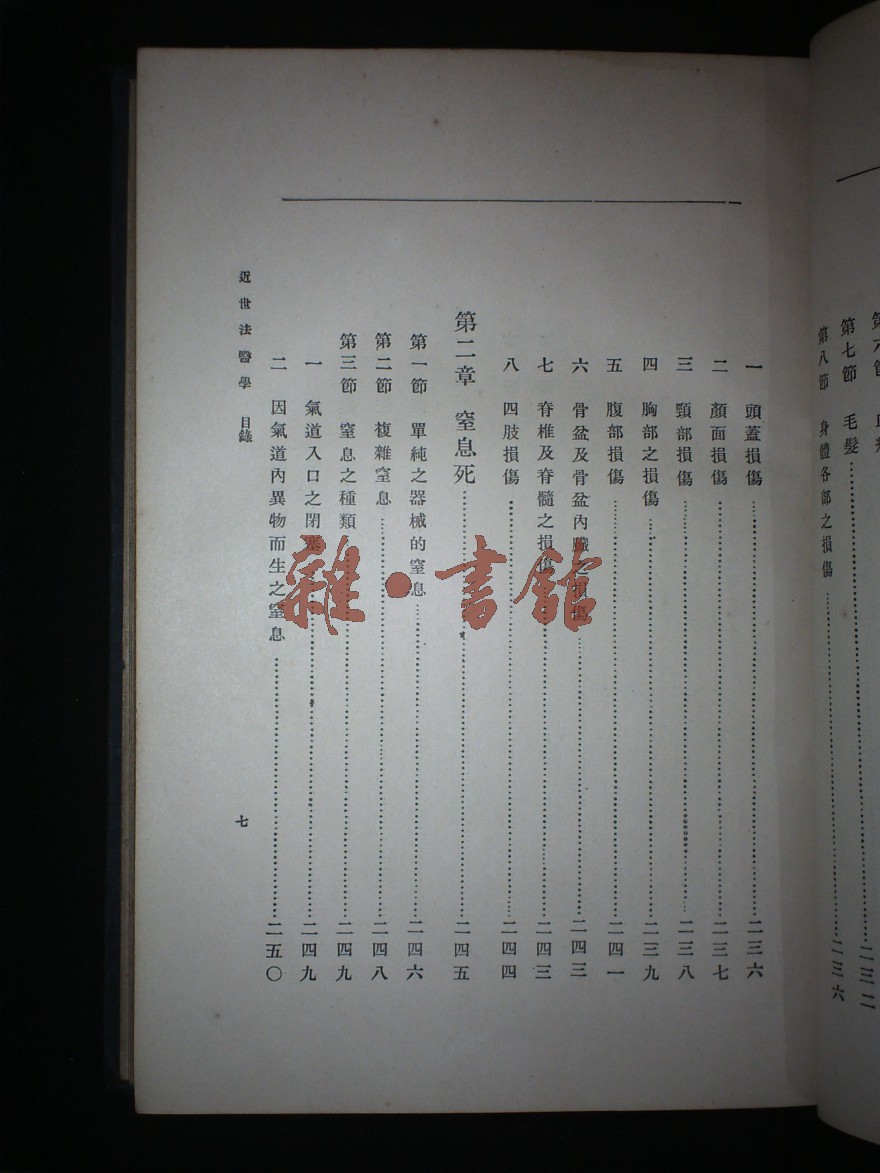 第七節 毛髮……二三二
第八節 身體各部之損傷……二三六
一 頭蓋損傷……二三六
二 顏面損傷……二三七
三 頸部損傷……二三八
四 胸部之損傷……二三九
五 腹部損傷……二四一
六 骨盆及骨盆內臟之損傷……二四三
七 脊椎及脊髓之損傷……二四三
八 四肢損傷……二四四
第二章 窒息死……二四五
第一節 單純之器械的窒息……二四六
第二節 複雜窒息……二四八
第三節 窒息之種類……二四九
一 氣道入口之閉塞……二四九
二 因氣道內異物而生之窒息……二五〇
近世法醫學 目錄
七
雜·書館